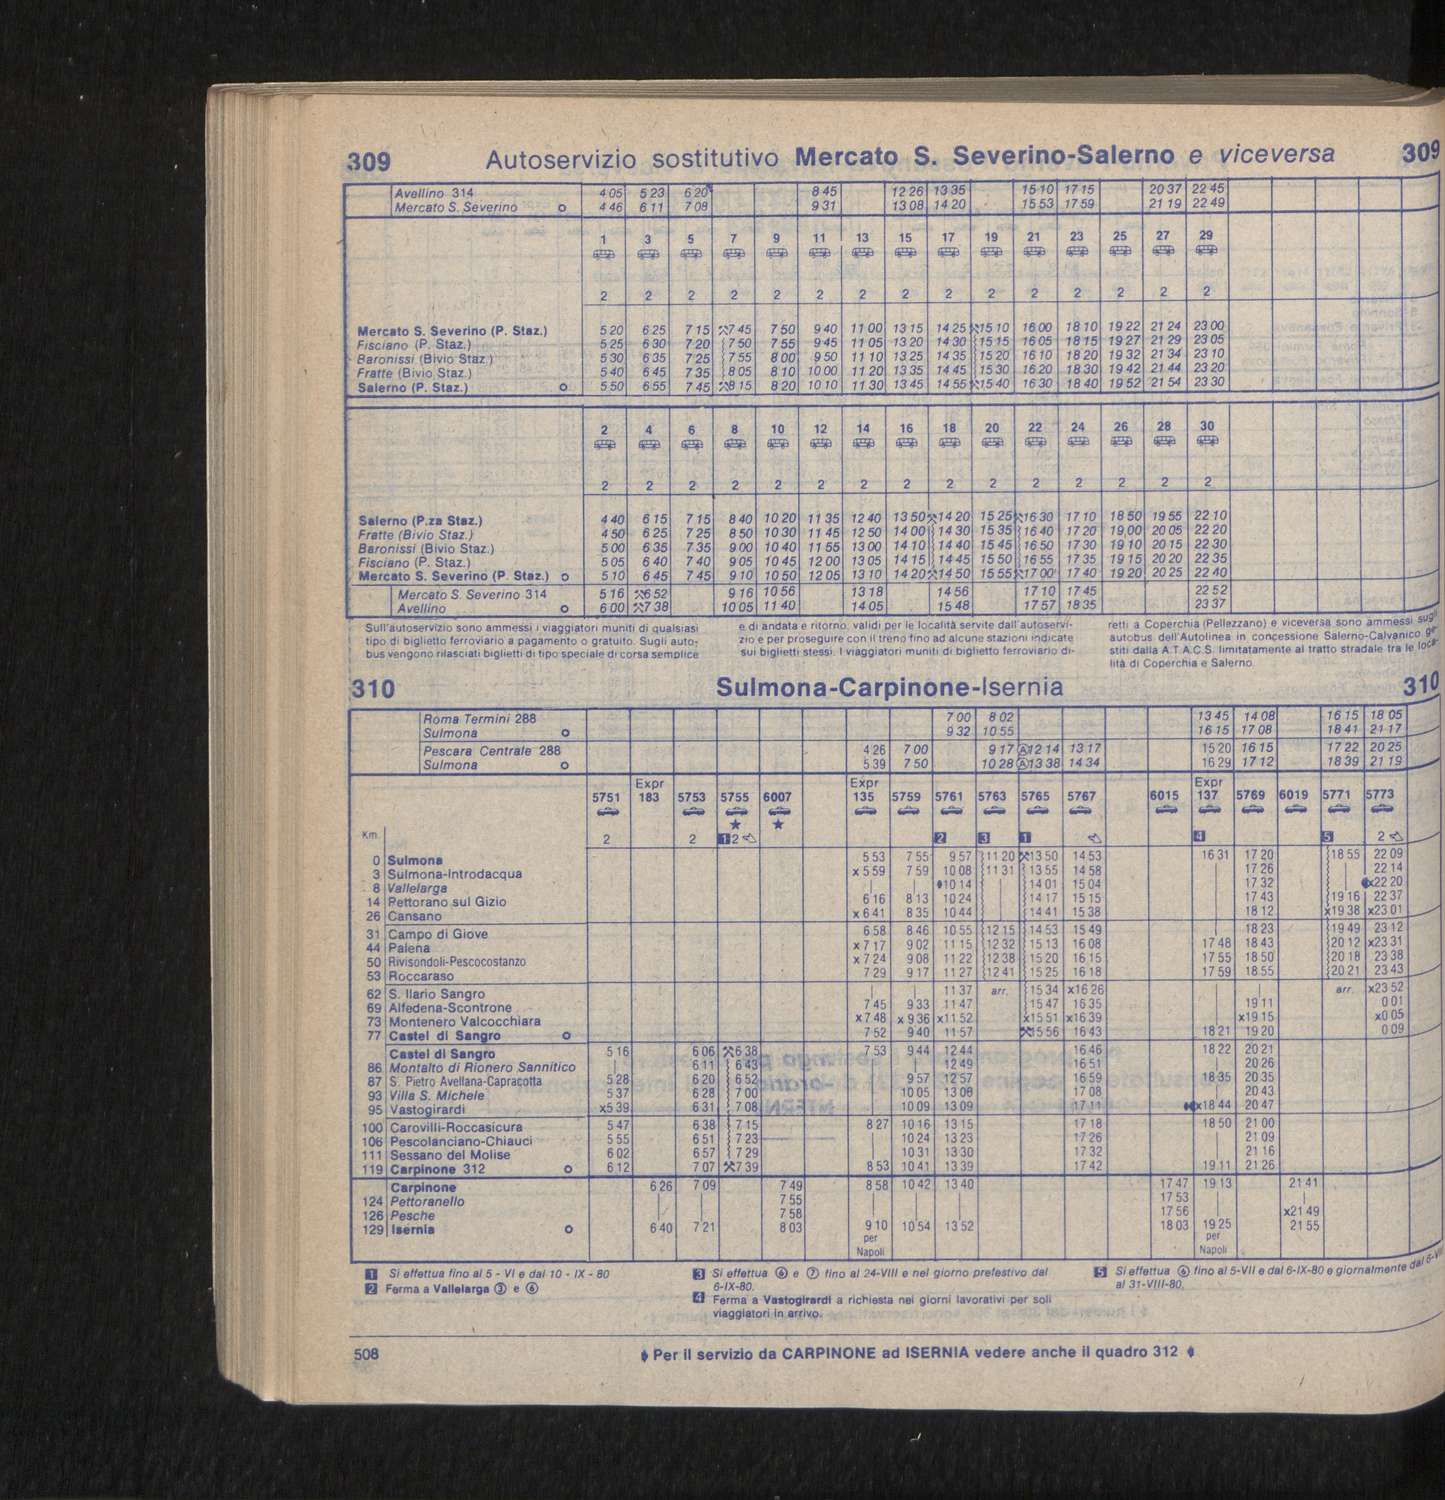 309 Autoservizio sostitutivo Mercato S. Severino-Salerno e viceversa 309
Avellino 314 4 05 5 23 6 20 8 45 12 26 13 35 15 10 17 15 20 37 22 45
Mercato S. Severino o 4 46 6 11 7 08 9 31 13 08 14 20 15 53 17 59 21 19 22 49
1 3 5 7 9 11 13 15 17 19 21 23 25 27 29
2 2 2 2 2 2 2 2 2 2 2 2 2 2 2
Mercato S. Severino (P. Staz.) 5 20 6 25 7 15 ⚒7 45 7 50 9 40 11 00 13 15 14 25 ⚒15 10 16 00 18 10 19 22 21 24 23 00
Fisciano (P. Staz.) 5 25 6 30 7 20 7 50 7 55 9 45 11 05 13 20 14 30 15 15 16 05 18 15 19 27 21 29 23 05
Baronissi (Bivio Staz.) 5 30 6 35 7 25 7 55 8 00 9 50 11 10 13 25 14 35 15 20 16 10 18 20 19 32 21 34 23 10
Fratte (Bivio Staz.) 5 40 6 45 7 35 8 05 8 10 10 00 11 20 13 35 14 45 15 30 16 20 18 30 19 42 21 44 23 20
Salerno (P. Staz.) o 5 50 6 55 7 45 ⚒8 15 8 20 10 10 11 30 13 45 14 55 ⚒15 40 16 30 18 40 19 52 21 54 23 30
2 4 6 8 10 12 14 16 18 20 22 24 26 28 30
2 2 2 2 2 2 2 2 2 2 2 2 2 2 2
Salerno (P.za Staz.) 4 40 6 15 7 15 8 40 10 20 11 35 12 40 13 50 ⚒14 20 15 25 ⚒16 30 17 10 18 50 19 55 22 10
Fratte (Bivio Staz.) 4 50 6 25 7 25 8 50 10 30 11 45 12 50 14 00 14 30 15 35 16 40 17 20 19 00 20 05 22 20
Baronissi (Bivio Staz.) 5 00 6 35 7 35 9 00 10 40 11 55 13 00 14 10 14 40 15 45 16 50 17 30 19 10 20 15 22 30
Fisciano (P. Staz.) 5 05 6 40 7 40 9 05 10 45 12 00 13 05 14 15 14 45 15 50 16 55 17 35 19 15 20 20 22 35
Mercato S. Severino (P. Staz.) o 5 10 6 45 7 45 9 10 10 50 12 05 13 10 14 20 ⚒14 50 15 55 ⚒17 00 17 40 19 20 20 25 22 40
Mercato S. Severino 314 5 16 ⚒6 52 9 16 10 56 13 18 14 56 17 10 17 45 22 52
Avellino o 6 00 ⚒7 38 10 05 11 40 14 05 15 48 17 57 18 35 23 37
Sull'autoservizio sono ammessi i viaggiatori muniti di qualsiasi
tipo di biglietto ferroviario a pagamento o gratuito. Sugli auto-
bus vengono rilasciati biglietti di tipo speciale di corsa semplice
e di andata e ritorno, validi per le località servite dall'autoservi-
zio e per proseguire con il treno fino ad alcune stazioni indicate
sui biglietti stessi. I viaggiatori muniti di biglietto ferroviario di-
retti a Coperchia (Pellezzano) e viceversa sono ammessi sugli
autobus dell'Autolinea in concessione Salerno-Calvanico ge-
stiti dalla A.T.A.C.S. limitatamente al tratto stradale tra le loca-
lità di Coperchia e Salerno.
310 Sulmona-Carpinone-Isernia 310
Roma Termini 288 7 00 8 02 13 45 14 08 16 15 18 05
Sulmona o 9 32 10 55 16 15 17 08 18 41 21 17
Pescara Centrale 288 4 26 7 00 9 17 Ⓐ12 14 13 17 15 20 16 15 17 22 20 25
Sulmona o 5 39 7 50 10 28 Ⓐ13 38 14 34 16 29 17 12 18 39 21 19
Expr Expr Expr
5751 183 5753 5755 6007 135 5759 5761 5763 5765 5767 6015 137 5769 6019 5771 5773
★ ★
Km. 2 2 1 2 2 3 1 4 5 2
0 Sulmona 5 53 7 55 9 57 11 20 ⚒13 50 14 53 16 31 17 20 18 55 22 09
3 Sulmona-Introdacqua x 5 59 7 59 10 08 11 31 13 55 14 58 17 26 22 14
8 Vallelarga 10 14 14 01 15 04 17 32 x22 20
14 Pettorano sul Gizio 6 16 8 13 10 24 14 17 15 15 17 43 19 16 22 37
26 Cansano x 6 41 8 35 10 44 14 41 15 38 18 12 x19 38 x23 01
31 Campo di Giove 6 58 8 46 10 55 12 15 14 53 15 49 18 23 19 49 23 12
44 Palena x 7 17 9 02 11 15 12 32 15 13 16 08 17 48 18 43 20 12 x23 31
50 Rivisondoli-Pescocostanzo x 7 24 9 08 11 22 12 38 15 20 16 15 17 55 18 50 20 18 23 38
53 Roccaraso 7 29 9 17 11 27 12 41 15 25 16 18 17 59 18 55 20 21 23 43
62 S. Ilario Sangro 11 37 arr. 15 34 x16 26 arr. x23 52
69 Alfedena-Scontrone 7 45 9 33 11 47 15 47 16 35 19 11 0 01
73 Montenero Valcocchiara x 7 48 x 9 36 x11 52 x15 51 x16 39 x19 15 x0 05
77 Castel di Sangro o 7 52 9 40 11 57 ⚒15 56 16 43 18 21 19 20 0 09
Castel di Sangro 5 16 6 06 ⚒6 38 7 53 9 44 12 44 16 46 18 22 20 21
86 Montalto di Rionero Sannitico 6 11 6 43 12 49 16 51 20 26
87 S. Pietro Avellana-Capracotta 5 28 6 20 6 52 9 57 12 57 16 59 18 35 20 35
93 Villa S. Michele 5 37 6 28 7 00 10 05 13 06 17 08 20 43
95 Vastogirardi x5 39 6 31 7 08 10 09 13 09 17 11 x18 44 20 47
100 Carovilli-Roccasicura 5 47 6 38 7 15 8 27 10 16 13 15 17 18 18 50 21 00
106 Pescolanciano-Chiauci 5 55 6 51 7 23 10 24 13 23 17 26 21 09
111 Sessano del Molise 6 02 6 57 7 29 10 31 13 30 17 32 21 16
119 Carpinone 312 o 6 12 7 07 ⚒7 39 8 53 10 41 13 39 17 42 19 11 21 26
Carpinone 6 26 7 09 7 49 8 58 10 42 13 40 17 47 19 13 21 41
124 Pettoranello 7 55 17 53
126 Pesche 7 58 17 56 x21 49
129 Isernia o 6 40 7 21 8 03 9 10 10 54 13 52 18 03 19 25 21 55
per per
Napoli Napoli
1 Si effettua fino al 5 - VI e dal 10 - IX - 80
2 Ferma a Vallelarga ③ e ⑥
3 Si effettua ⑥ e ⑦ fino al 24-VIII e nel giorno prefestivo dal
6-IX-80.
4 Ferma a Vastogirardi a richiesta nei giorni lavorativi per soli
viaggiatori in arrivo.
5 Si effettua ⑥ fino al 5-VII e dal 6-IX-80 e giornalmente dal 6-VII
al 31-VIII-80.
508 Per il servizio da CARPINONE ad ISERNIA vedere anche il quadro 312